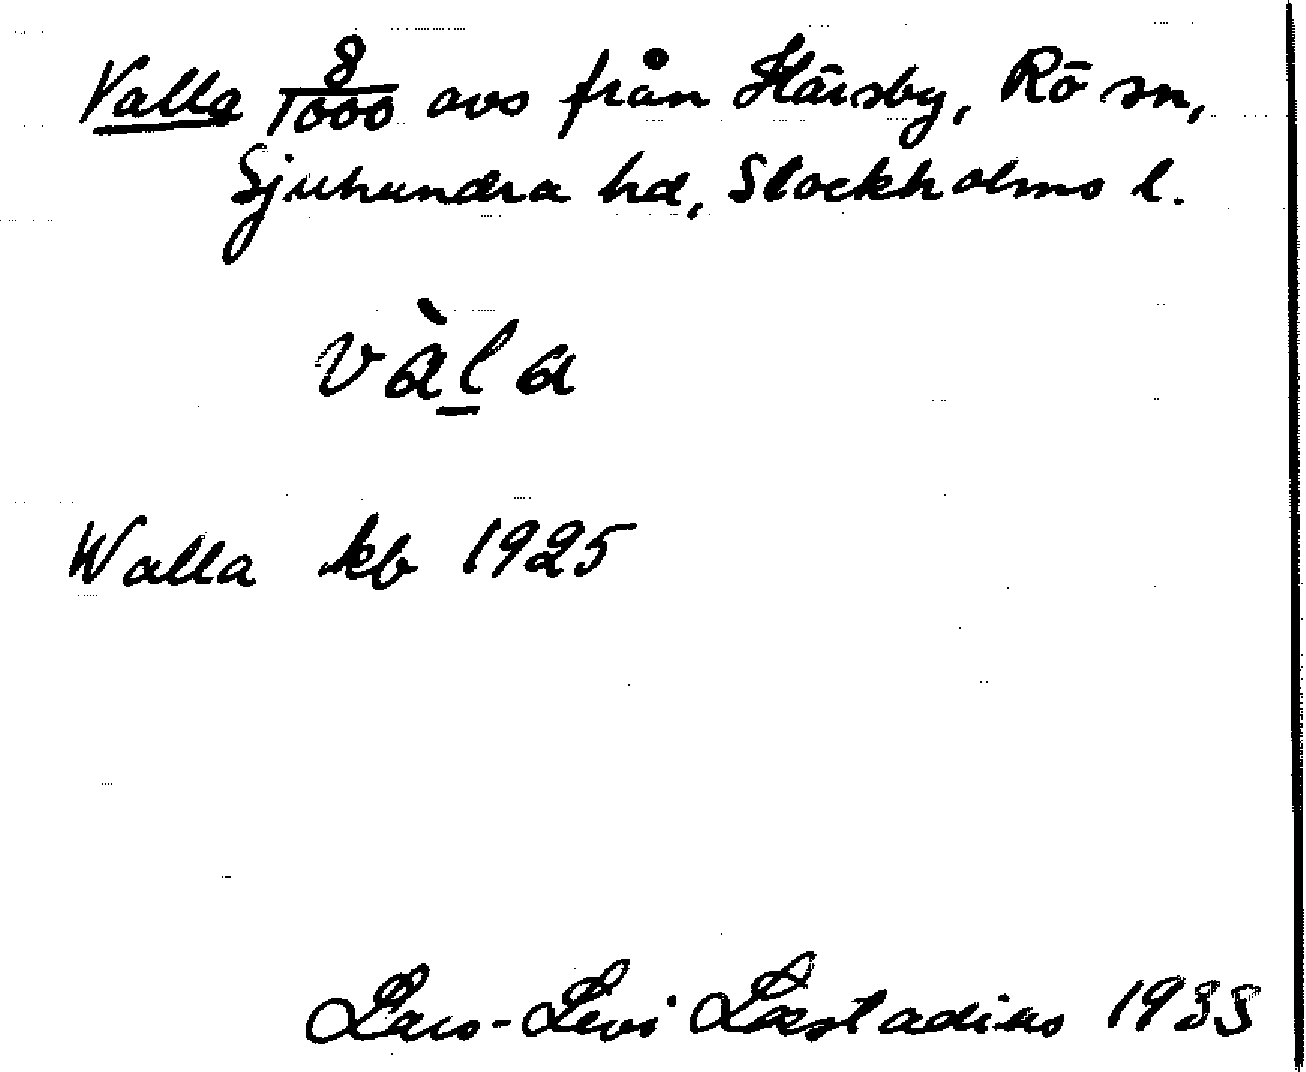 Valla 8/1000 avs från Härsby, Rö sn,
Sjuhundra hd, Stockholms l.
vàla
Walla kb 1925
Lars-Levi Læstadius 1935